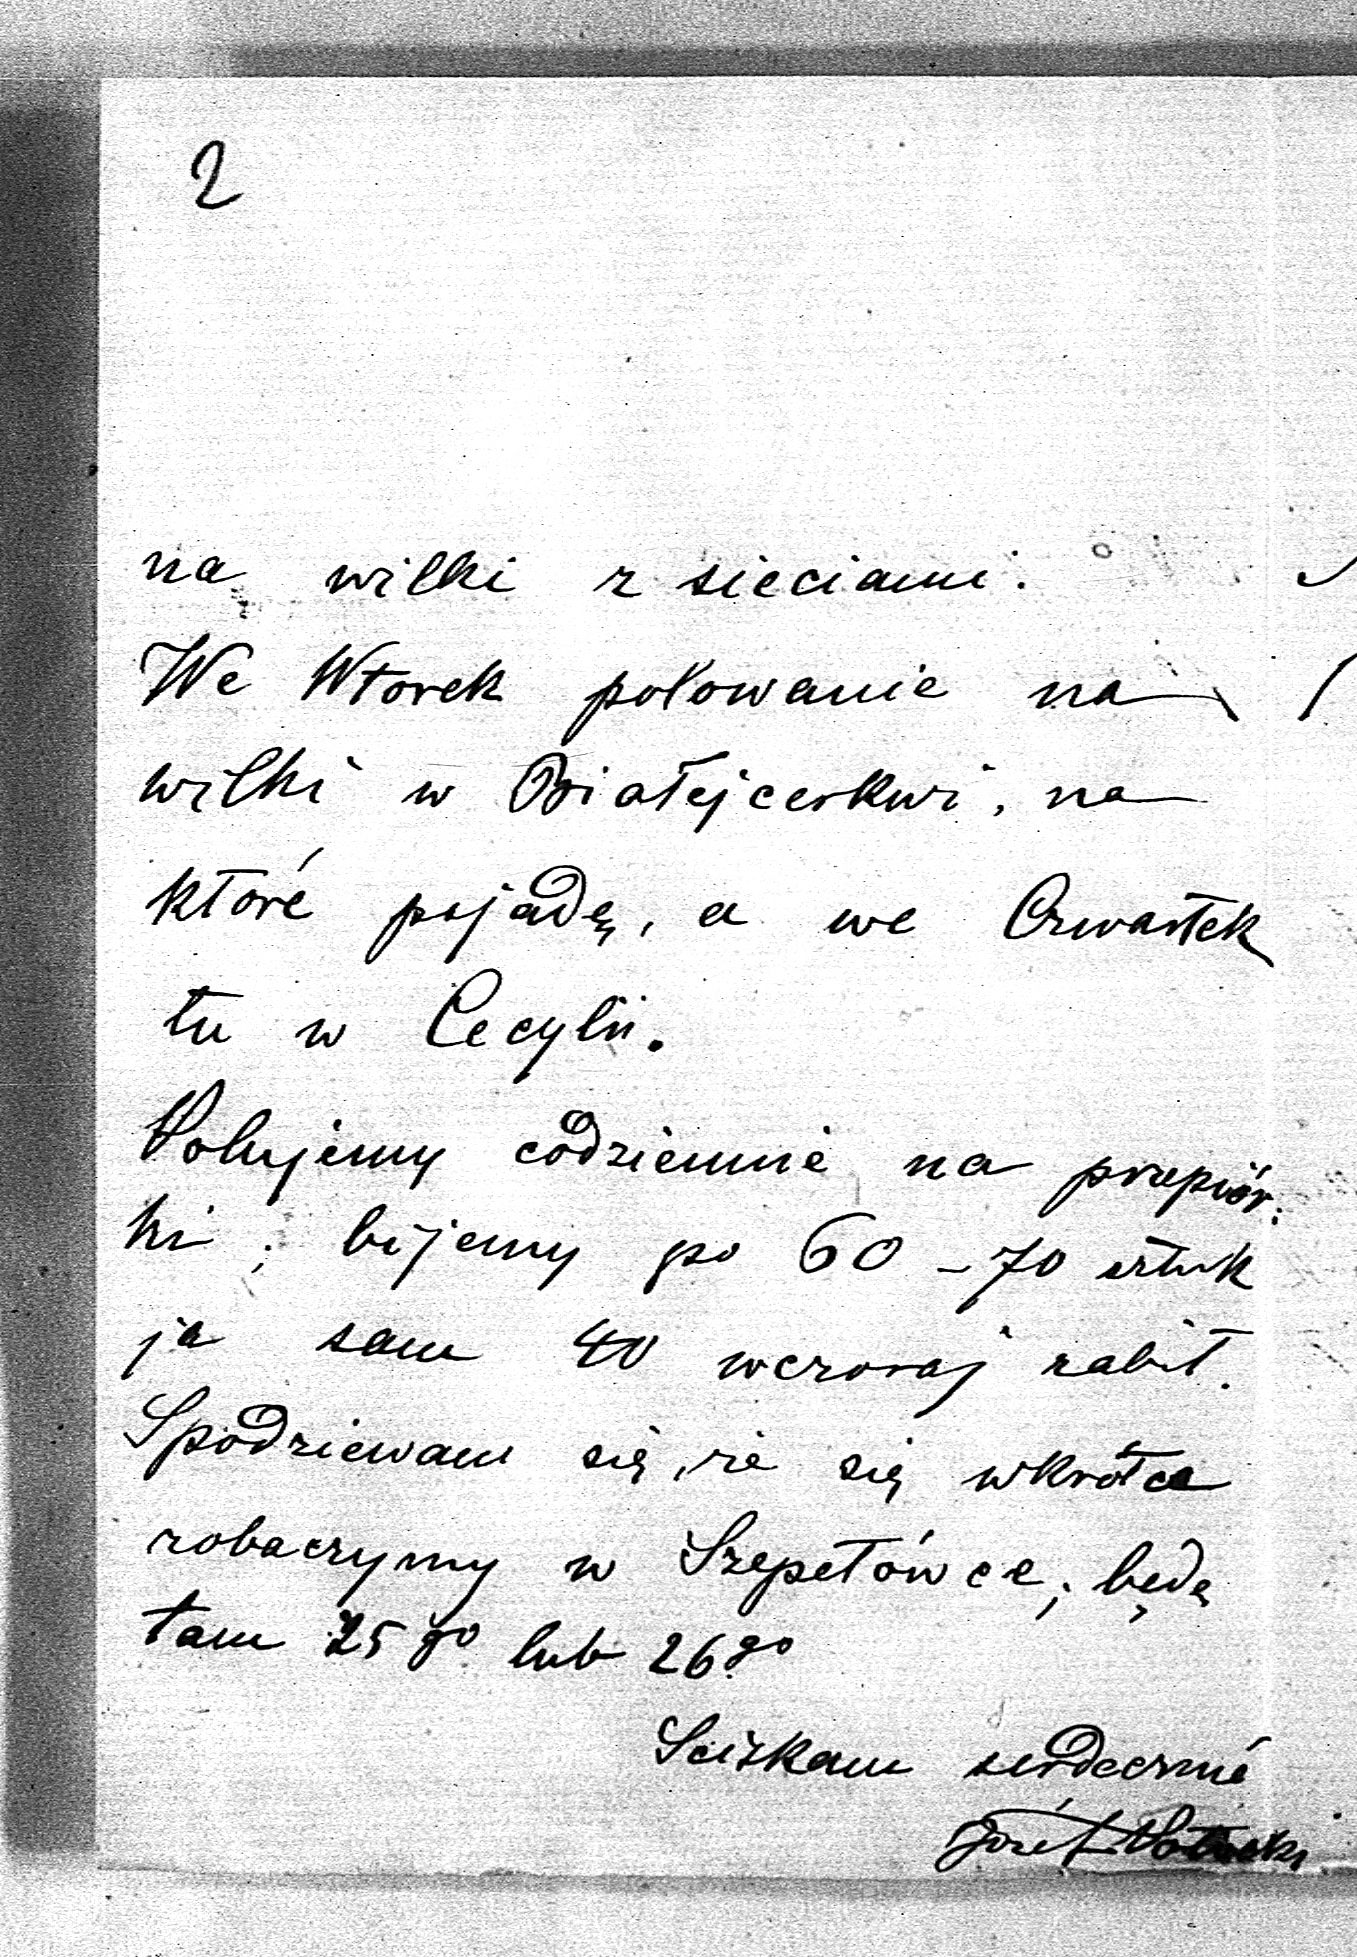 2
na wilki z sieciami.
We Wtorek polowanie na
wilki w Białejcerkwi, na
które pojadę, a we Czwartek
tu w Cecylii.
Polujemy codziennie na przepiór-
ki; bijemy po 60 - 70 sztuk
ja sam 40 wczoraj zabił.
Spodziewam się, że się wkrótce
zobaczymy w Szepetówce; będę
tam 25go lub 26go
Sciskam serdecznie
Józef Potocki